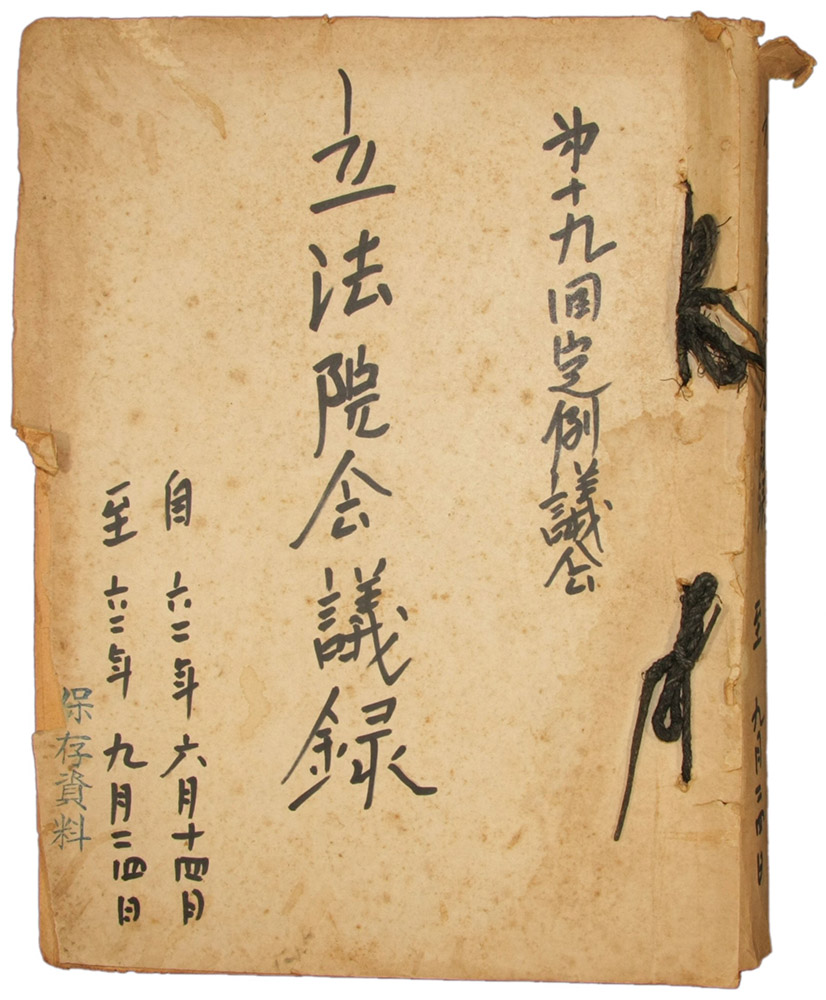 第十九回定例議会
立法院会議録
自 六二年 六月十四日
至 六二年 九月二四日
保存資料
至 九月二四日